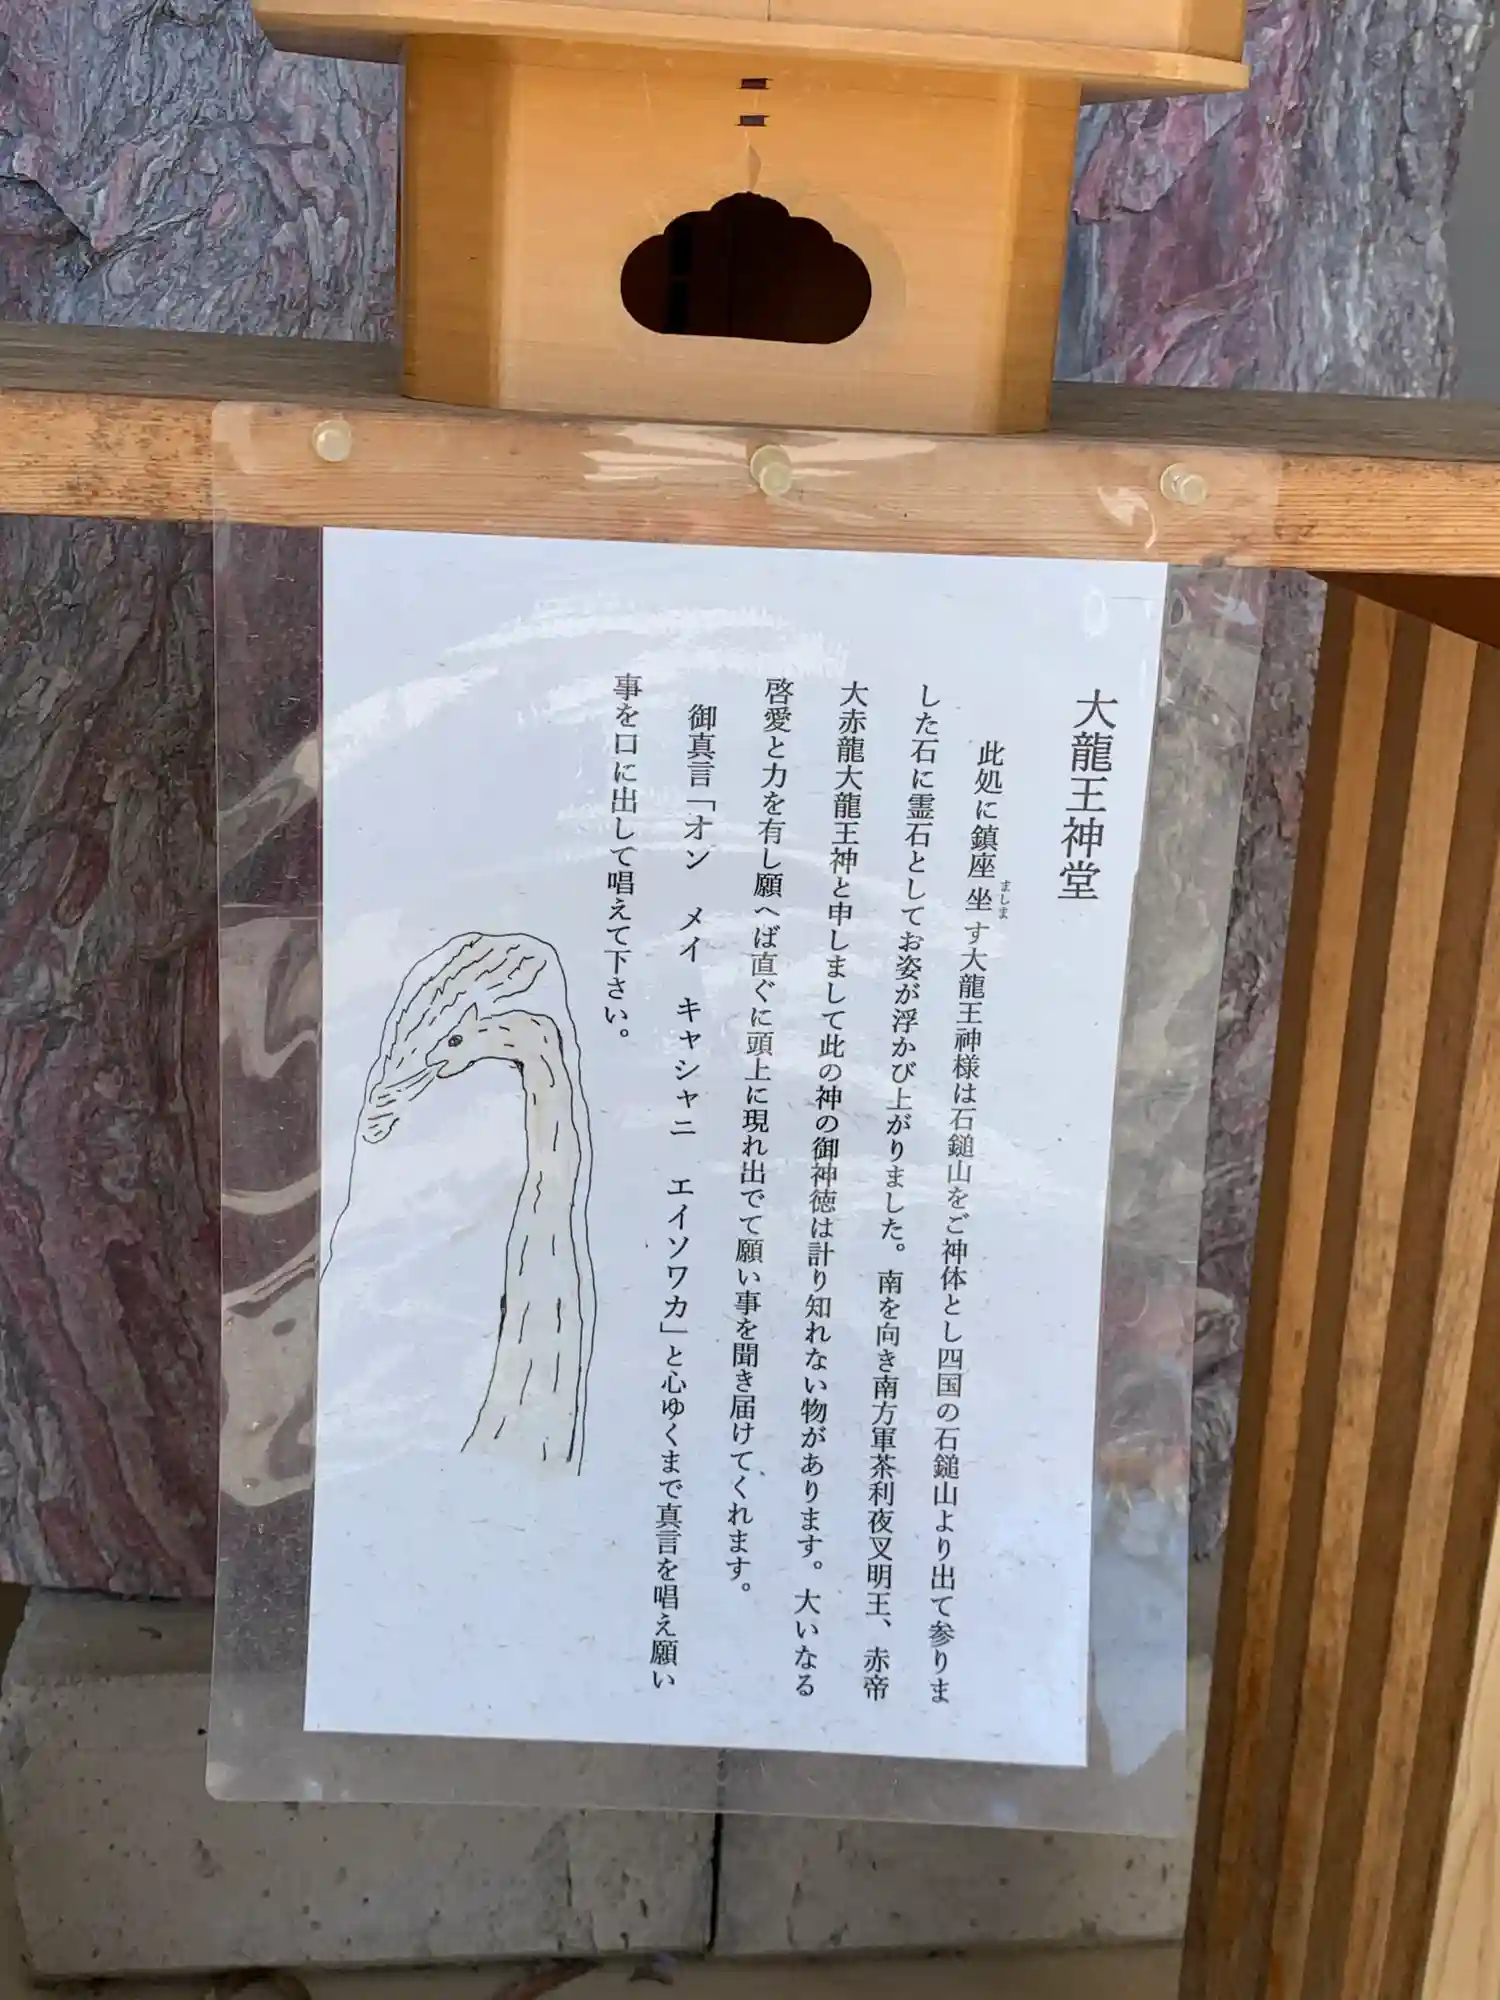 大龍王神堂
此処に鎮座坐す大龍王神様は石鎚山をご神体とし四国の石鎚山より出て参りま
ましま
した石に霊石としてお姿が浮かび上がりました。南を向き南方軍茶利夜叉明王、赤帝
大赤龍大龍王神と申しまして此の神の御神徳は計り知れない物があります。大いなる
啓愛と力を有し願へば直ぐに頭上に現れ出でて願い事を聞き届けてくれます。
御真言「オン　メイ　キャシャニ　エイソワカ」と心ゆくまで真言を唱え願い
事を口に出して唱えて下さい。